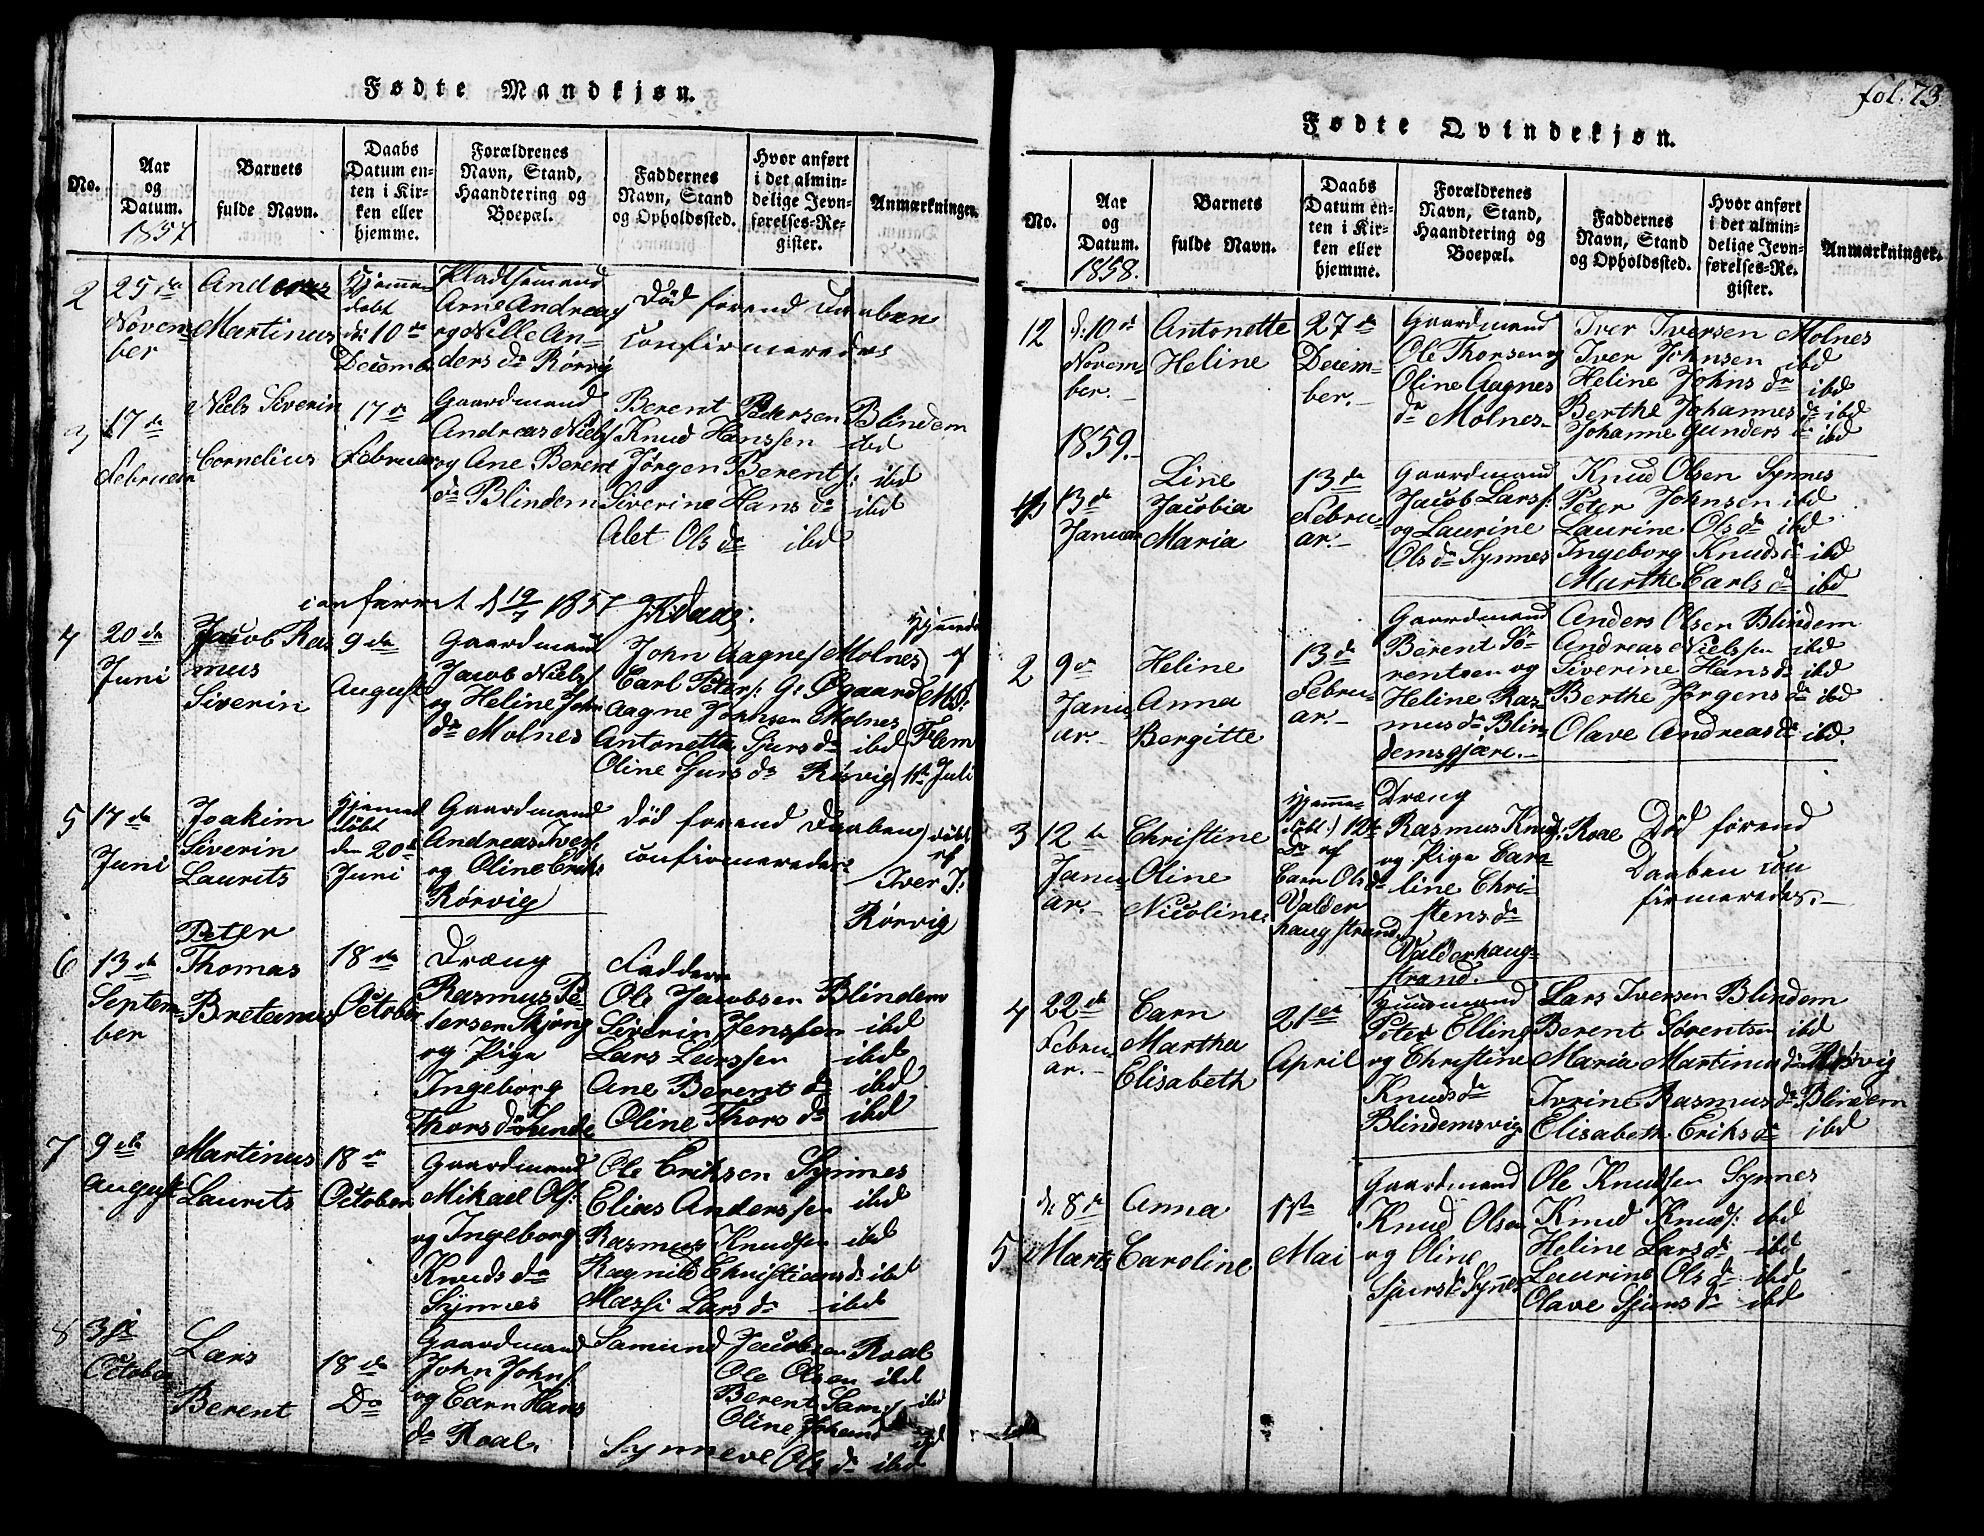 Fødte Mandkjøn.
No.
Aar
og
Datum.
1857
Barnets
fulde Navn.
Daabs
Datum en-
ten i Kir-
ken eller
hjemme.
Forældrenes
Navn, Stand,
Haandtering og
Boepæl.
Faddernes
Navn, Stand
og Opholdssted.
Hvor anført
i det almin-
delige Jevn-
førelses-Re-
gister.
Anmærkninger.
2
25de
Novem-
ber
Anderas
Martinus
Hjemme-
døbt
d: 10de
Decemb
Pladsemand
Arne Andreas
og Nille An-
ders dr Rørvig
Død forend Daaben
confirmeredes
3
17de
Februar
Niels Siverin
Cornelius
17de
Februar
Gaardmand
Andreas Niels
og Ane Berent
dr Blindem
Berent Pedersen Blindem
Knud Hanssen ibd
Jørgen Berents: ibd
Siverine Hans dr ibd
Alet Ols dr ibd
conferret d 19/7 1857 J.K. Daae.
4
20de
Juni
Jacob Ras
mus
Siverin
9de
August
Gaardmand
Jacob Niels
og Heline John
dr Molnes
John Aagnes Molnes
Carl Peters: G: Øgaard
Aagne Johnsen Molnes
Antonette Sjurs dr ibd
Oline Sjurs dr Rørvig
Hjemmed
af
M.S:
Flem
11te Juli
5
17de
Juni
Joakim
Severin
Laurits
Hjemmed
døbt
den 20de
Juni
Gaardmand
Andreas Ivers
og Oline Eriks
Rørvig
Død forend Daaben
confirmeredes
døbt
af
Iver I:
Rørvig
6
13de
Septem-
ber
Peter
Thomas
Breteanus
18de
October
Dræng
Rasmus Pe-
tersen Skjong
og Pige
Ingeborg
Thors dr Lunde
Faddere
Ole Jacobsen Blindem
Siverin Jenssen ibd
Lars Larssen ibd
Ane Berent dr ibd
Oline Thors dr ibd
7
9de
August
Martinus
Laurits
18de
October
Gaardmand
Mikael Ols:
og Ingeborg
Knuds dr
Synnes
Ole Eriksen Synnes
Elias Anderssen ibd
Rasmus Knudsen ibd
Ragnild Christians dr ibd
Massi Lars dr ibd
8
October
Lars
Berent
18de
Do
Gaardmand
John Johns:
og Carn Hans
dr Roal.
Samund Jacobsen Roal
Ole Olsen ibd
Berent Sams ibd
Oline Johans dr ibd
Synneve Ols dr ibd
fol. 73
Fødte Qvindekjøn.
No.
Aar
og
Datum.
1858.
Barnets
fulde Navn.
Daabs
Datum en-
ten i Kir-
ken eller
hjemme.
Forældrenes
Navn, Stand,
Haandtering og
Boepæl.
Faddernes
Navn, Stand
og Opholdssted.
Hvor anført
i det almin-
delige Jevn-
førelses-Re-
gister.
Anmærkninger.
12
d: 10de
Novem-
ber.
Antonette
Heline
27de
Decem-
ber.
Gaardmand
Ole Thorsen og
Oline Aagnes
dr Molnes
Iver Iversen Molnes
Iver Johnsen ibd
Heline Johns dr ibd
Berthe Johannes dr ibd
Johanne Gunders dr ibd
1859.
13de
Januar
Line
Jacobia
Maria
13de
Febru-
ar.
Gaardmand
Jacob Lars:
og Laurine
Ols dr Synnes
Knud Olsen Synnes
Peter Johnsen ibd
Laurine Ols dr ibd
Ingeborg Knuds dr ibd
Marthe Carls dr ibd
2
9de
Janu-
ar.
Heline
Anna
Bergitte
13de
Febru-
ar.
Gaardmand
Berent Sø-
rentsen og
Heline Ras-
mus dr Blin-
demsgjære.
Anders Olsen Blindem
Andreas Nielssen ibd
Siverine Hans dr ibd
Berthe Jørgens dr ibd
Olave Andreas dr ibd.
3
12te
Janu-
ar.
Christine
Oline
Nicoline
Hjemme-
døbt: 12te
Do af
Carn Ols dr
Valder
haug strand
Dræng
Rasmus Knuds: Roal
og Pige Caro-
line Chri-
stens dr
Valderhaug-
strand.
Død førend
Daaben con
firmeredes.
4
22de
Febru-
ar.
Carn
Martha
Elisabeth
21de
April
Huusmand
Peter Elling
og Christine
Knuds dr
Blindemsvig
Lars Iversen Blindem
Berent Sørentsen ibd
Maria Martinus dr Rørvig
Ivrine Rasmus dr Blindem
Elisabeth Eriks dr ibd
5
d: 8de
Marts
Anna
Caroline
1ste
Mai
Gaardmand
Knud Olsen
og Oline
Sjurs dr Synnes
Ole Knudsen Synnes
Knud Knuds: ibd
Heline Lars dr ibd
Laurine Ols dr ibd
Olave Sjurs dr ibd